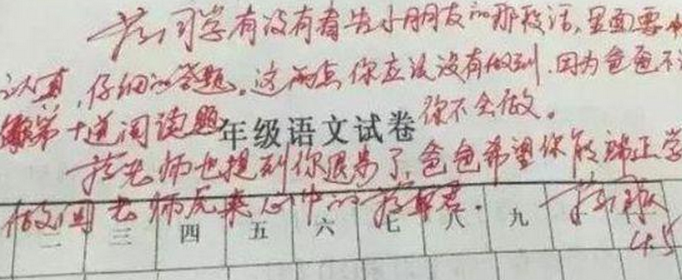 同学有没有看告小朋友的那段话,里面要
认真,仔细的答题。这两点你应该没有做到.因为爸爸不
第十道阅读题 你不会做。
年级语文试卷
老师也提到你退步了,爸爸希望你能端正学
做回老师原来心中的
三 四 五 六 七 八 九
4.5